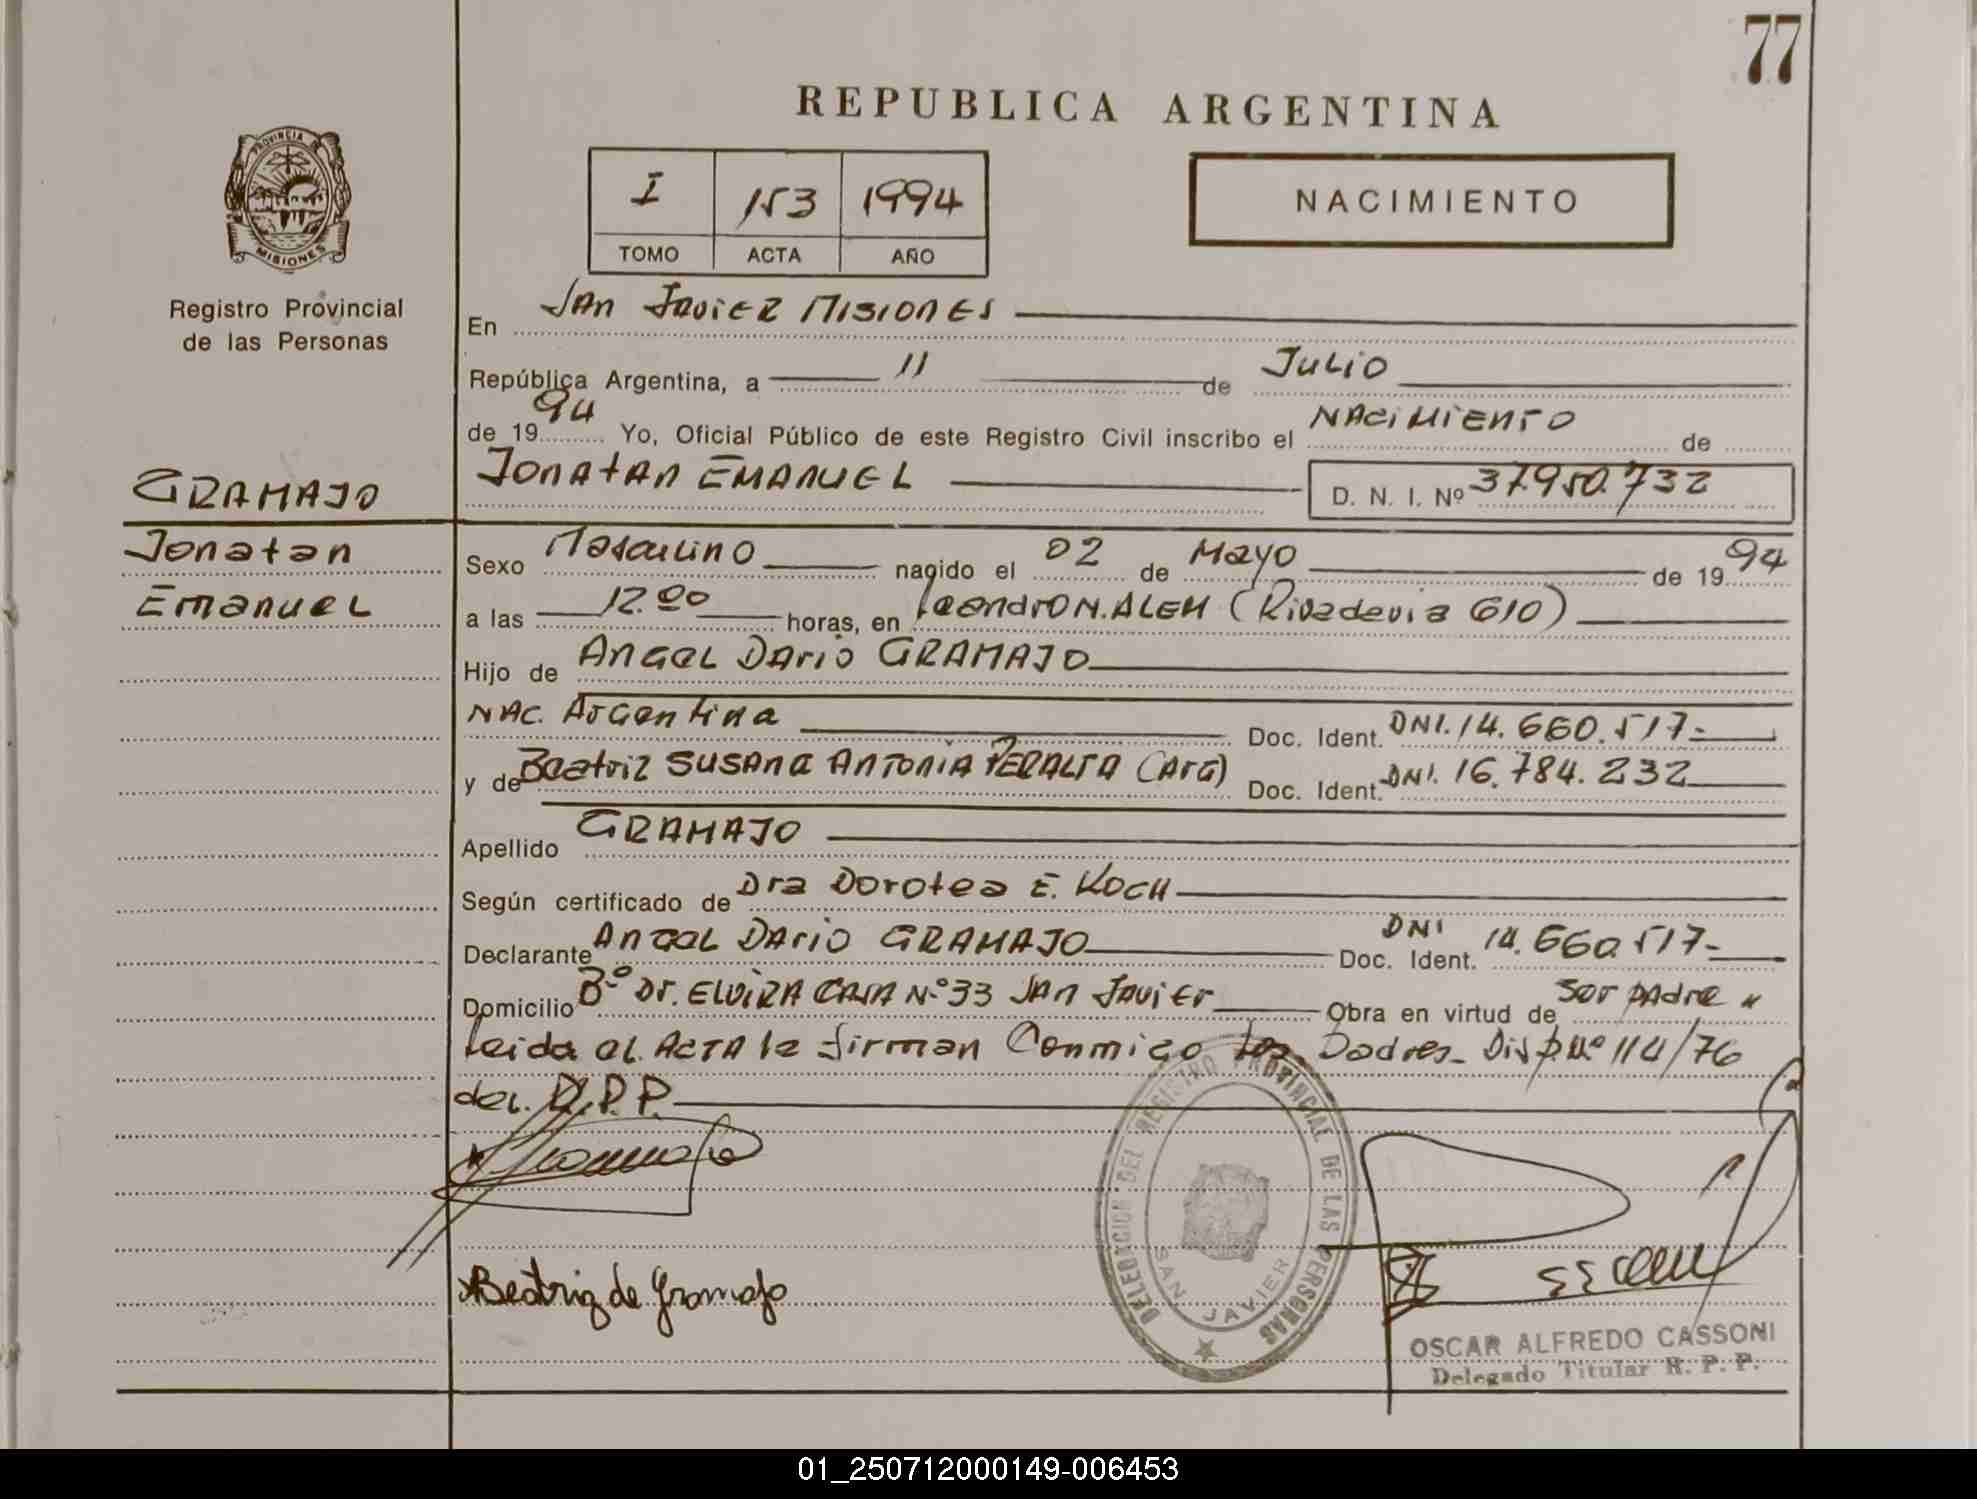 77
REPUBLICA ARGENTINA
PROVINCIA DE
MISIONES
Registro Provincial
de las Personas
I 153 1994
TOMO ACTA AÑO
NACIMIENTO
En San Javier Misiones
República Argentina, a 11 de Julio
de 1994 Yo, Oficial Público de este Registro Civil inscribo el NACiMiENTO de
JONATAN EMANUEL D. N. I. Nº 37.950.732
GRAMAJO
Jonatan
Emanuel
Sexo Masculino nacido el 02 de Mayo de 1994
a las 12.00 horas, en Leandro N. ALEM (Rivadavia 610)
Hijo de Angel Dario GRAMAJO
NAC. Argentina Doc. Ident. DNI. 14.660.517-
y de Beatriz SUSANA ANTONIA PERALTA (Arg) Doc. Ident. DNI. 16.784.232
Apellido GRAMAJO
Según certificado de Dra Dorotea E. KOCH
Declarante Angel Dario GRAMAJO Doc. Ident. DNI 14.660.517-
Domicilio Bº Dr. ELVIRA CASA Nº 33 San Javier Obra en virtud de ser padre
Leida el ACTA la firman Conmigo los Padres- Disp Nº 114/76
del R.P.P.
Beatriz de Gramajo
DELEGACION DEL REGISTRO PROVINCIAL DE LAS PERSONAS
SAN JAVIER
OSCAR ALFREDO CASSONI
Delegado Titular R. P. P.
01_250712000149-006453